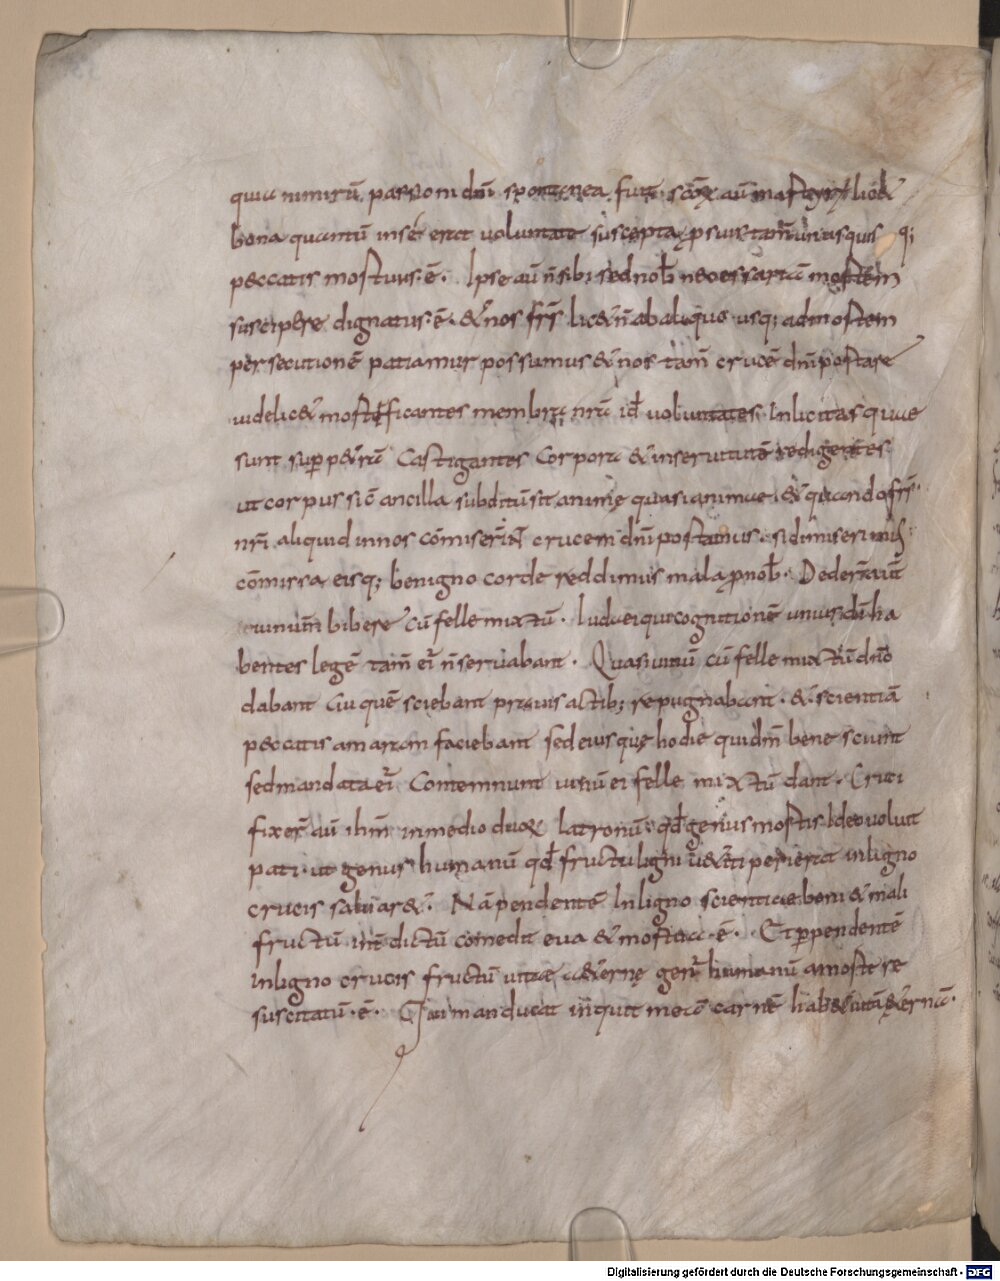 quia nimirũ passioni dñi spontanea fuit· sc̃oꝝ aũ in martyriũ lic&
bona quantũ insẽ erat voluntate suscepta, ꝓsuis tam̃ unusquis q;
peccatis mortuus·ẽ· Ipse aũ ñ sibi sed nob̃ necessariã mortem
suscipere dignatus·ẽ· & nos frs̃ lic& ñ ab aliquo usq; ad mortem
persecutionẽ patiamur possumus & nos tam̃ crucẽ dñi portare
uidelic& mortificantes membra nrã id̃ voluntates Inlicitas quae
sunt sup terrã Castigantes Corpora & inseruitutẽ redigentes
ut corpus sic̃ ancilla subditũ sit animę quasi animae· & quando frs̃·
nrĩ aliquid in nos cõmiserĩt crucem dñi portamus· si dimiserimus
cõmissa eisq; benigno corde reddimus mala ꝓ nob̃· Dederũt aũt
uinum bibere cũ felle mixtũ· Iudaei qui cognitionẽ unius dĩ ha
bentes legẽ tam̃ eĩ ñ seruabant· Quasi uinũ cũ felle mixtũ dño
dabant Cui quẽ sciebant prauis actib; repugnabant· & scientiã
peccatis amaram faciebant sed eius quę hodie quidm̃ bene sciunt
sed mandata eĩ Contemnunt uinũ ei felle mixtũ dant· Cruci
fixer̃ aũ ihm̃ in medio duoꝝ latronũ· qd̃ genus mortis Ideo voluit
pati· ut genus humanũ qd̃ fructu ligni u&iti perierat in ligno
crucis saluar&· Nã pendentẽ In ligno scientiae boni & mali
fructũ int̃dictũ comedit eua & mortua·ẽ· Et ꝑ pendentẽ
In ligno crucis fructũ uitae &ernę gen' humanũ a morte re
suscitatũ·ẽ· Qui manducat inquit meã carnẽ hab& uitã &ernã·
Digitalisierung gefördert durch die Deutsche Forschungsgemeinschaft - DFG